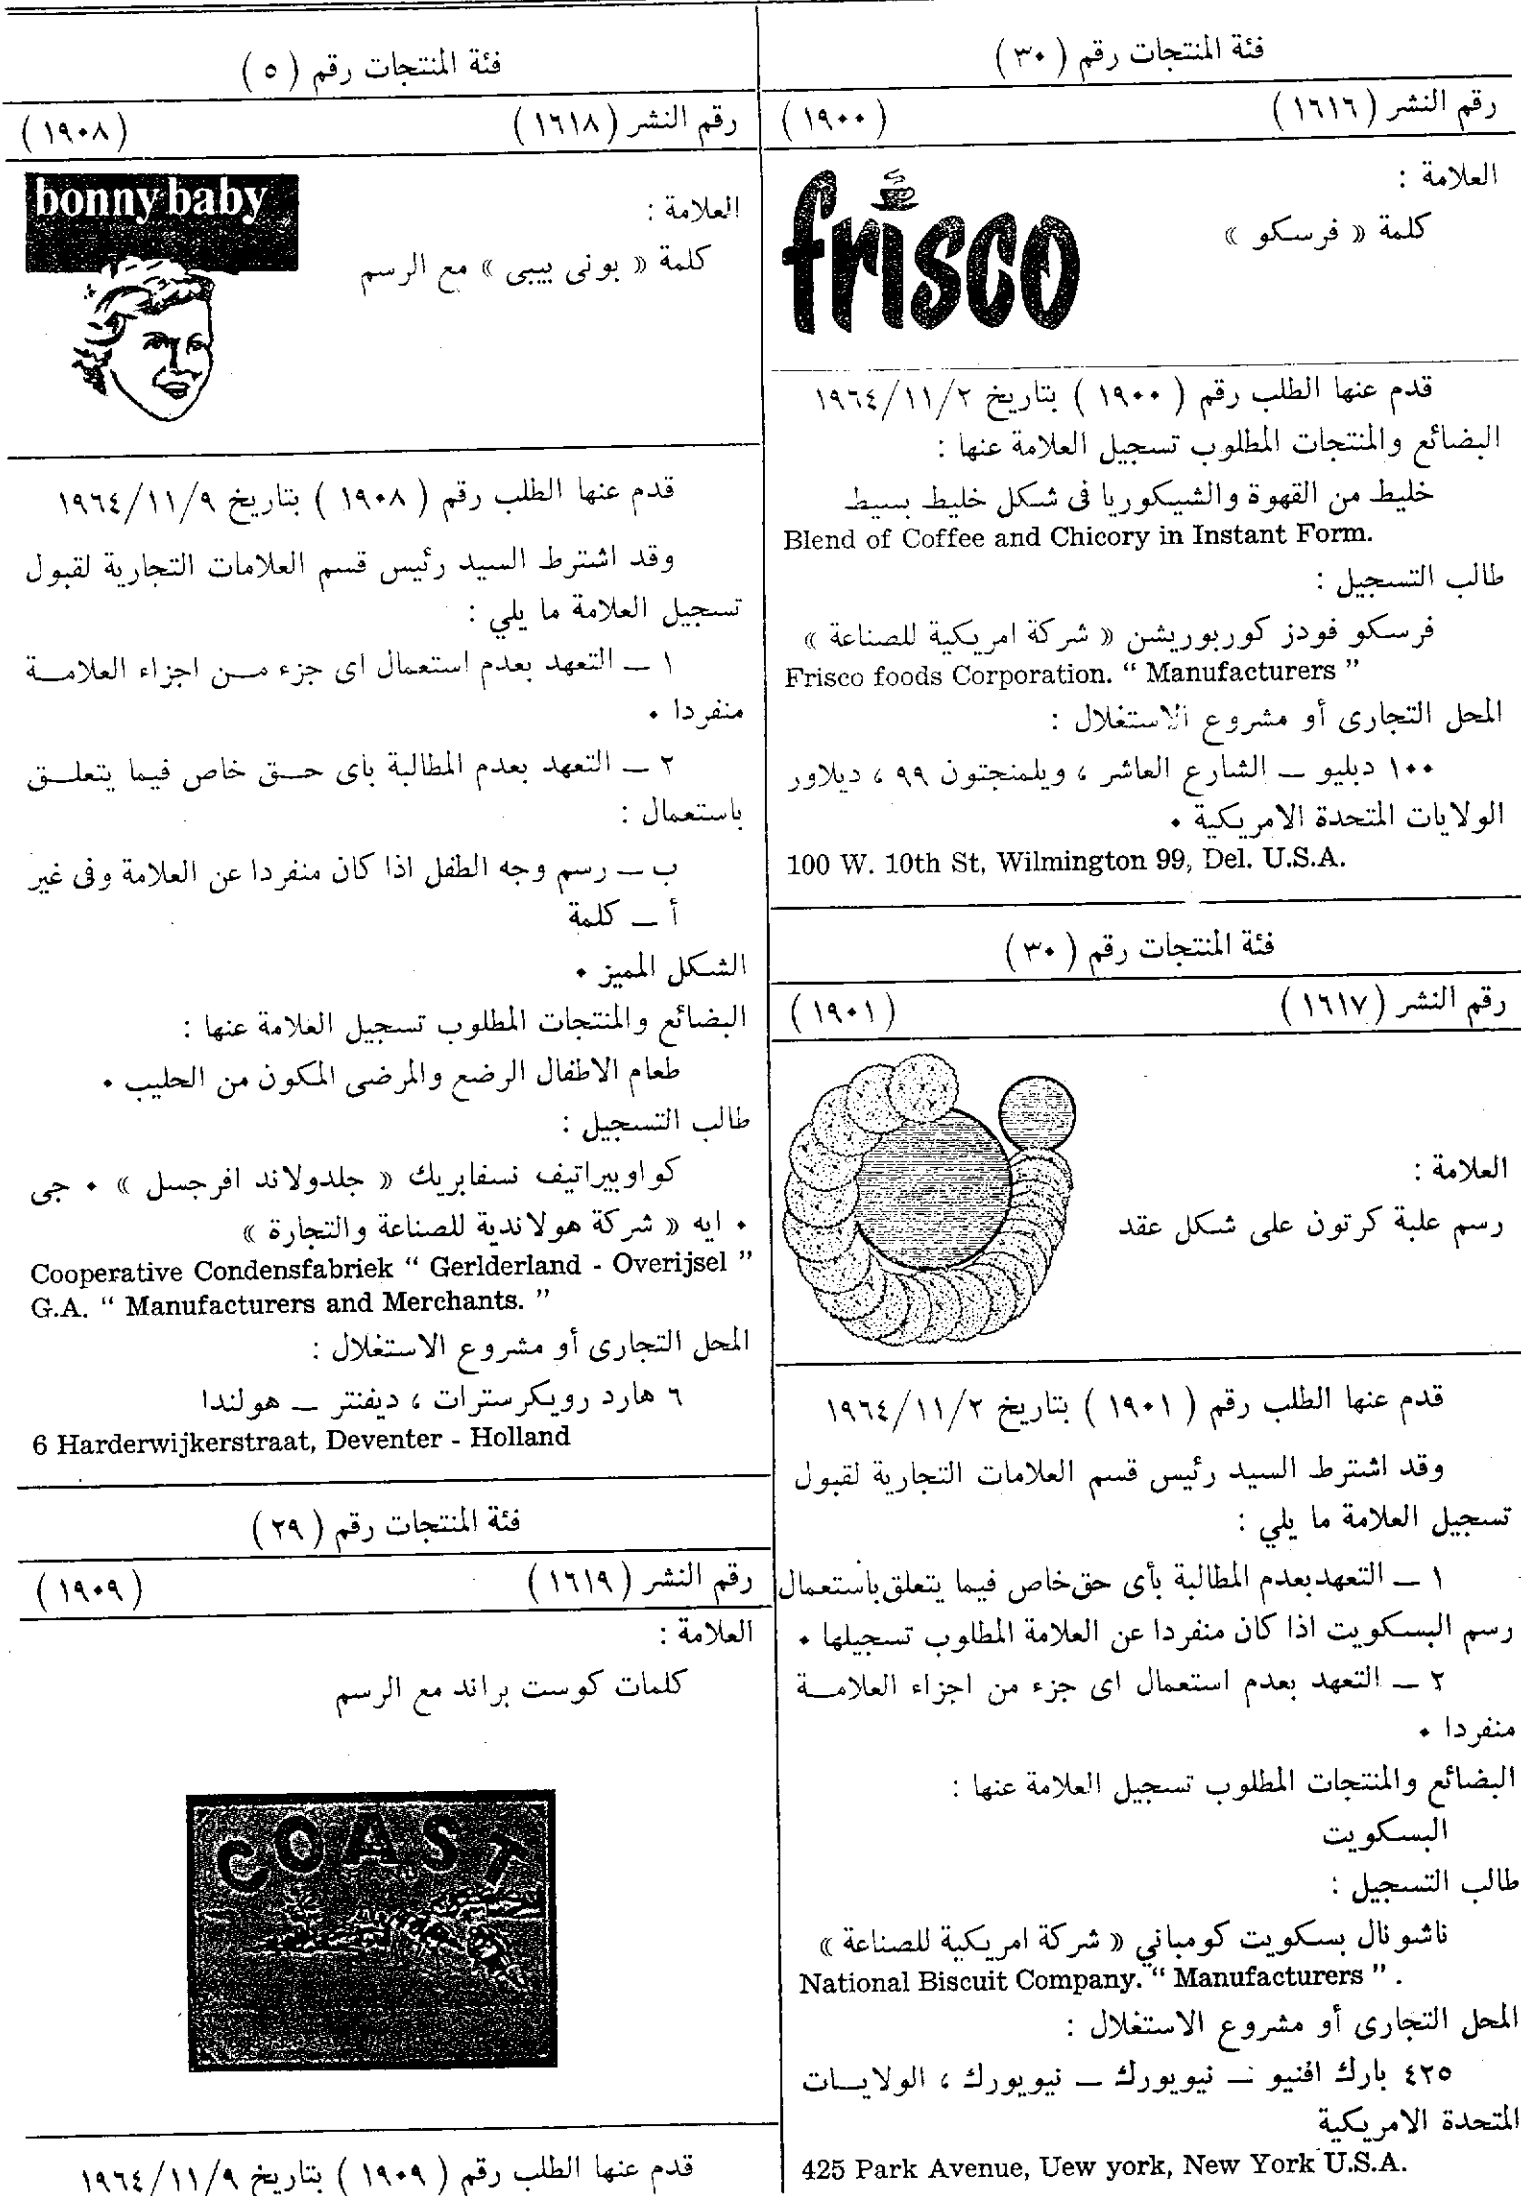 فئة المنتجات رقم ( ٣٠ )
رقم النشر ( ١٦١٦ ) ( ١٩٠٠ )
العلامة :
كلمة « فرسكو »
frisco
قدم عنها الطلب رقم ( ١٩٠٠ ) بتاريخ ١٩٦٤/١١/٢
البضائع والمنتجات المطلوب تسجيل العلامة عنها :
خليط من القهوة والشيكوريا فى شكل خليط بسيط
Blend of Coffee and Chicory in Instant Form.
طالب التسجيل :
فرسكو فودز كوربوريشن « شركة امريكية للصناعة »
Frisco foods Corporation. “ Manufacturers ”
المحل التجارى أو مشروع الاستغلال :
١٠٠ دبليو ــ الشارع العاشر ، ويلمنجتون ٩٩ ، ديلاور
الولايات المتحدة الامريكية ٠
100 W. 10th St, Wilmington 99, Del. U.S.A.
فئة المنتجات رقم ( ٣٠ )
رقم النشر ( ١٦١٧ ) ( ١٩٠١ )
العلامة :
رسم علبة كرتون على شكل عقد
قدم عنها الطلب رقم ( ١٩٠١ ) بتاريخ ١٩٦٤/١١/٢
وقد اشترط السيد رئيس قسم العلامات التجارية لقبول
تسجيل العلامة ما يلي :
١ ــ التعهد بعدم المطالبة بأى حق خاص فيما يتعلق باستعمال
رسم البسكويت اذا كان منفردا عن العلامة المطلوب تسجيلها ٠
٢ ــ التعهد بعدم استعمال اى جزء من اجزاء العلامــة
منفردا ٠
البضائع والمنتجات المطلوب تسجيل العلامة عنها :
البسكويت
طالب التسجيل :
ناشونال بسكويت كومباني « شركة امريكية للصناعة »
National Biscuit Company. “ Manufacturers ” .
المحل التجارى أو مشروع الاستغلال :
٤٢٥ بارك افنيو ــ نيويورك ــ نيويورك ، الولايــات
المتحدة الامريكية
425 Park Avenue, Uew york, New York U.S.A.
فئة المنتجات رقم ( ٥ )
رقم النشر ( ١٦١٨ ) ( ١٩٠٨ )
bonny baby
العلامة :
كلمة « بونى بيبى » مع الرسم
قدم عنها الطلب رقم ( ١٩٠٨ ) بتاريخ ١٩٦٤/١١/٩
وقد اشترط السيد رئيس قسم العلامات التجارية لقبول
تسجيل العلامة ما يلي :
١ ــ التعهد بعدم استعمال اى جزء مــن اجزاء العلامــة
منفردا ٠
٢ ــ التعهد بعدم المطالبة باى حــق خاص فيما يتعلــق
باستعمال :
ب ــ رسم وجه الطفل اذا كان منفردا عن العلامة وفى غير
أ ــ كلمة
الشكل المميز ٠
البضائع والمنتجات المطلوب تسجيل العلامة عنها :
طعام الاطفال الرضع والمرضى المكون من الحليب ٠
طالب التسجيل :
كواوبيراتيف نسفابريك « جلدولاند افرجسل » ٠ جى
٠ ايه « شركة هولاندية للصناعة والتجارة »
Cooperative Condensfabriek “ Gerlderland - Overijsel ”
G.A. “ Manufacturers and Merchants. ”
المحل التجارى أو مشروع الاستغلال :
٦ هارد رويكرسترات ، ديفنتر ــ هولندا
6 Harderwijkerstraat, Deventer - Holland
فئة المنتجات رقم ( ٢٩ )
رقم النشر ( ١٦١٩ ) ( ١٩٠٩ )
العلامة :
كلمات كوست براند مع الرسم
COAST
BRAND
قدم عنها الطلب رقم ( ١٩٠٩ ) بتاريخ ١٩٦٤/١١/٩